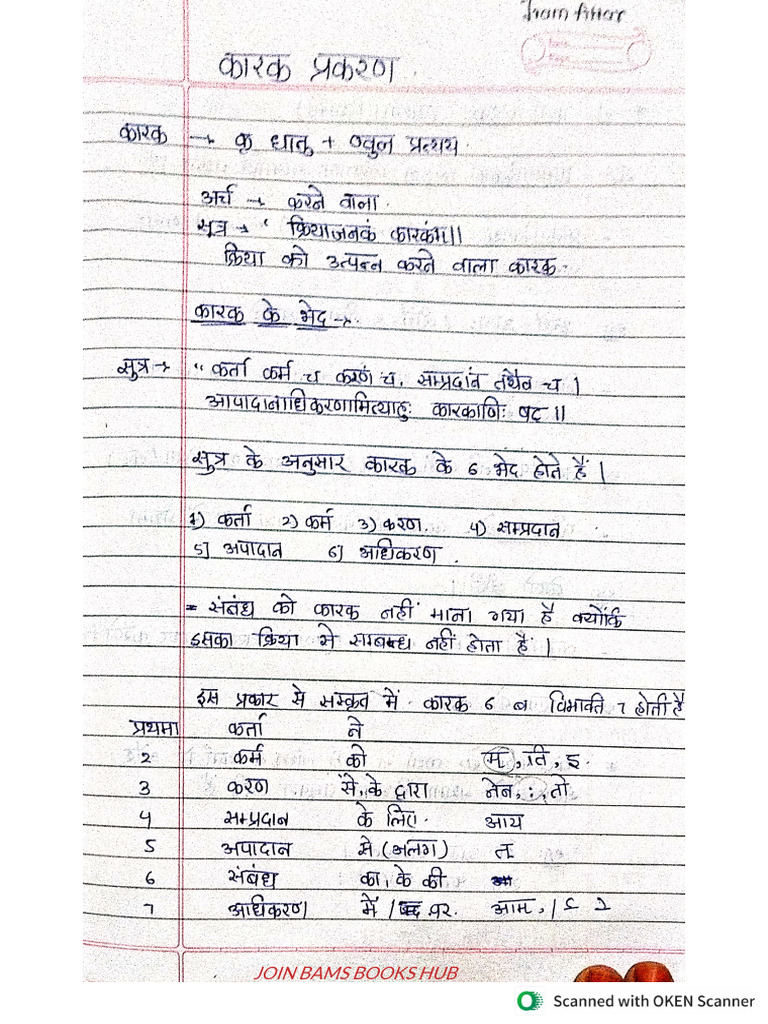 कारक प्रकरण.
कारक → कृ धातु + ण्वुल प्रत्यय.
अर्थ → करने वाला.
सूत्र → " क्रियाजनकं कारकंम॥
क्रिया को उत्पन्न करने वाला कारक.
कारक के भेद →.
सुत्र → " कर्ता कर्म च करणं च, सम्प्रदानं तथैव च।
आपादानाधिकरणामित्याहुः कारकाणिः षट ॥
सुत्र के अनुसार कारक के 6 भेद होते हैं।
1) कर्ता 2) कर्म 3) करण 4) सम्प्रदान
5] अपादान 6] अधिकरण.
= संबंध को कारक नहीं माना गया है क्योंकि
इसका क्रिया से सम्बन्ध नहीं होता है।
इस प्रकार से संस्कृत में कारक 6 व विभक्ति 7 होती है
प्रथमा कर्ता ने
2 कर्म को म्, नि, इ.
3 करण से, के द्वारा नेन, :, तो
4 सम्प्रदान के लिए. आय
5 अपादान से (अलग) त्
6 संबंध का, के की
7 अधिकरण में / पर. आम,
JOIN BAMS BOOKS HUB
Scanned with OKEN Scanner